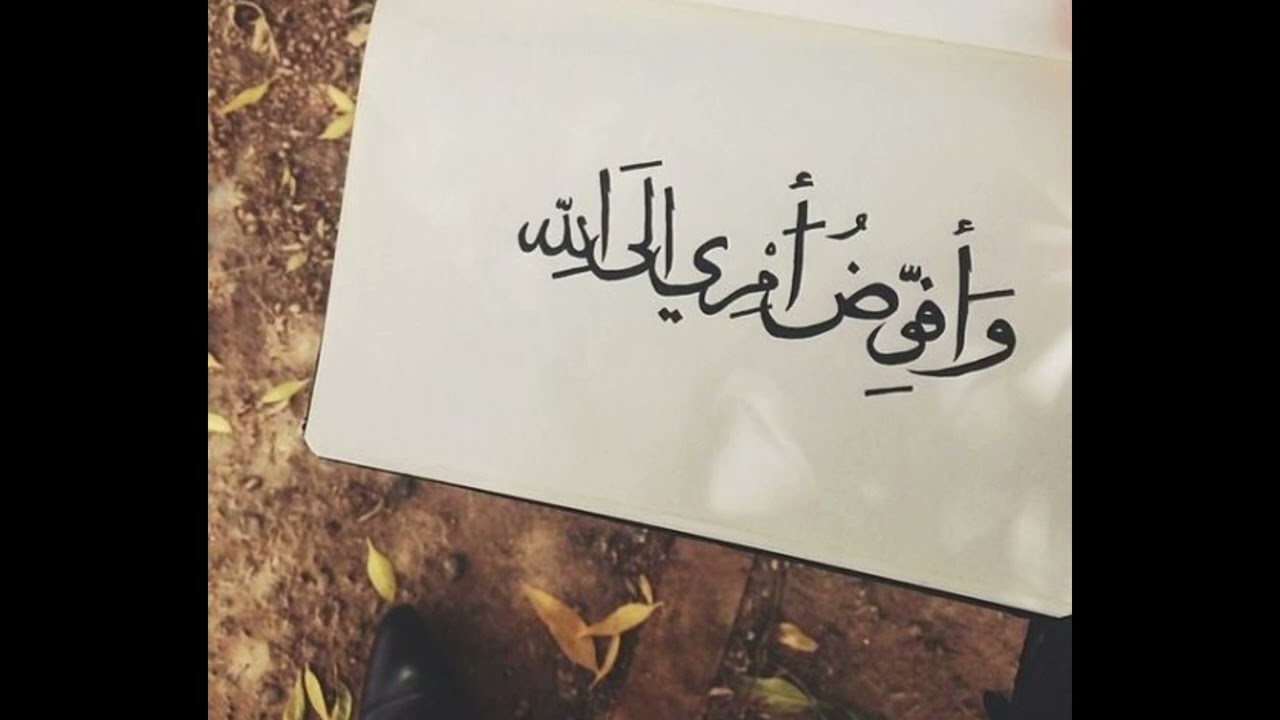 وَأفوِّضُ أَمْرِي إلَى اللّٰه